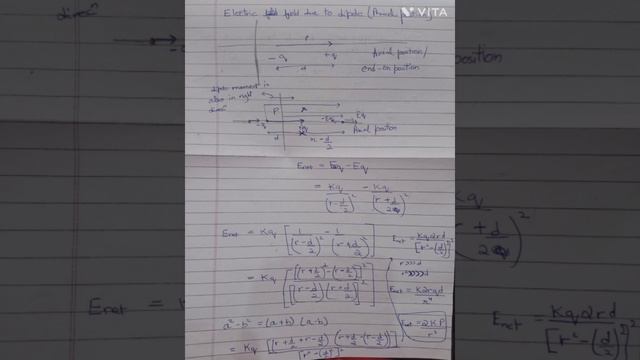 VITA
Electric field due to dipole (Axial position)
P
-q +q
d
Axial position/
end-on position
dipole moment is
also in right
direcⁿ
P r
-q +q -Eq Eq
d r - d/2
Axial position
Enet = Eq - Eq
= Kq/(r-d/2)² - Kq/(r+d/2)²
Enet = Kq [1/(r-d/2)² - 1/(r+d/2)²]
= Kq [[(r+d/2)²-(r-d/2)²]/[(r-d/2)(r+d/2)]²]
a²-b² = (a+b) (a-b)
= Kq [(r+d/2+r-d/2) (r+d/2-(r-d/2))]/[r²-(d/2)²]²
Enet = Kq2rd/[r²-(d/2)²]²
r>>>d
r>>>>>d
Enet = K2rqd/r⁴
Enet = 2KP/r³
direcⁿ
-q
position
Kq
r+d/2
2
Enet = K
Enet = Kq2rd/[r²-(d/2)²]²